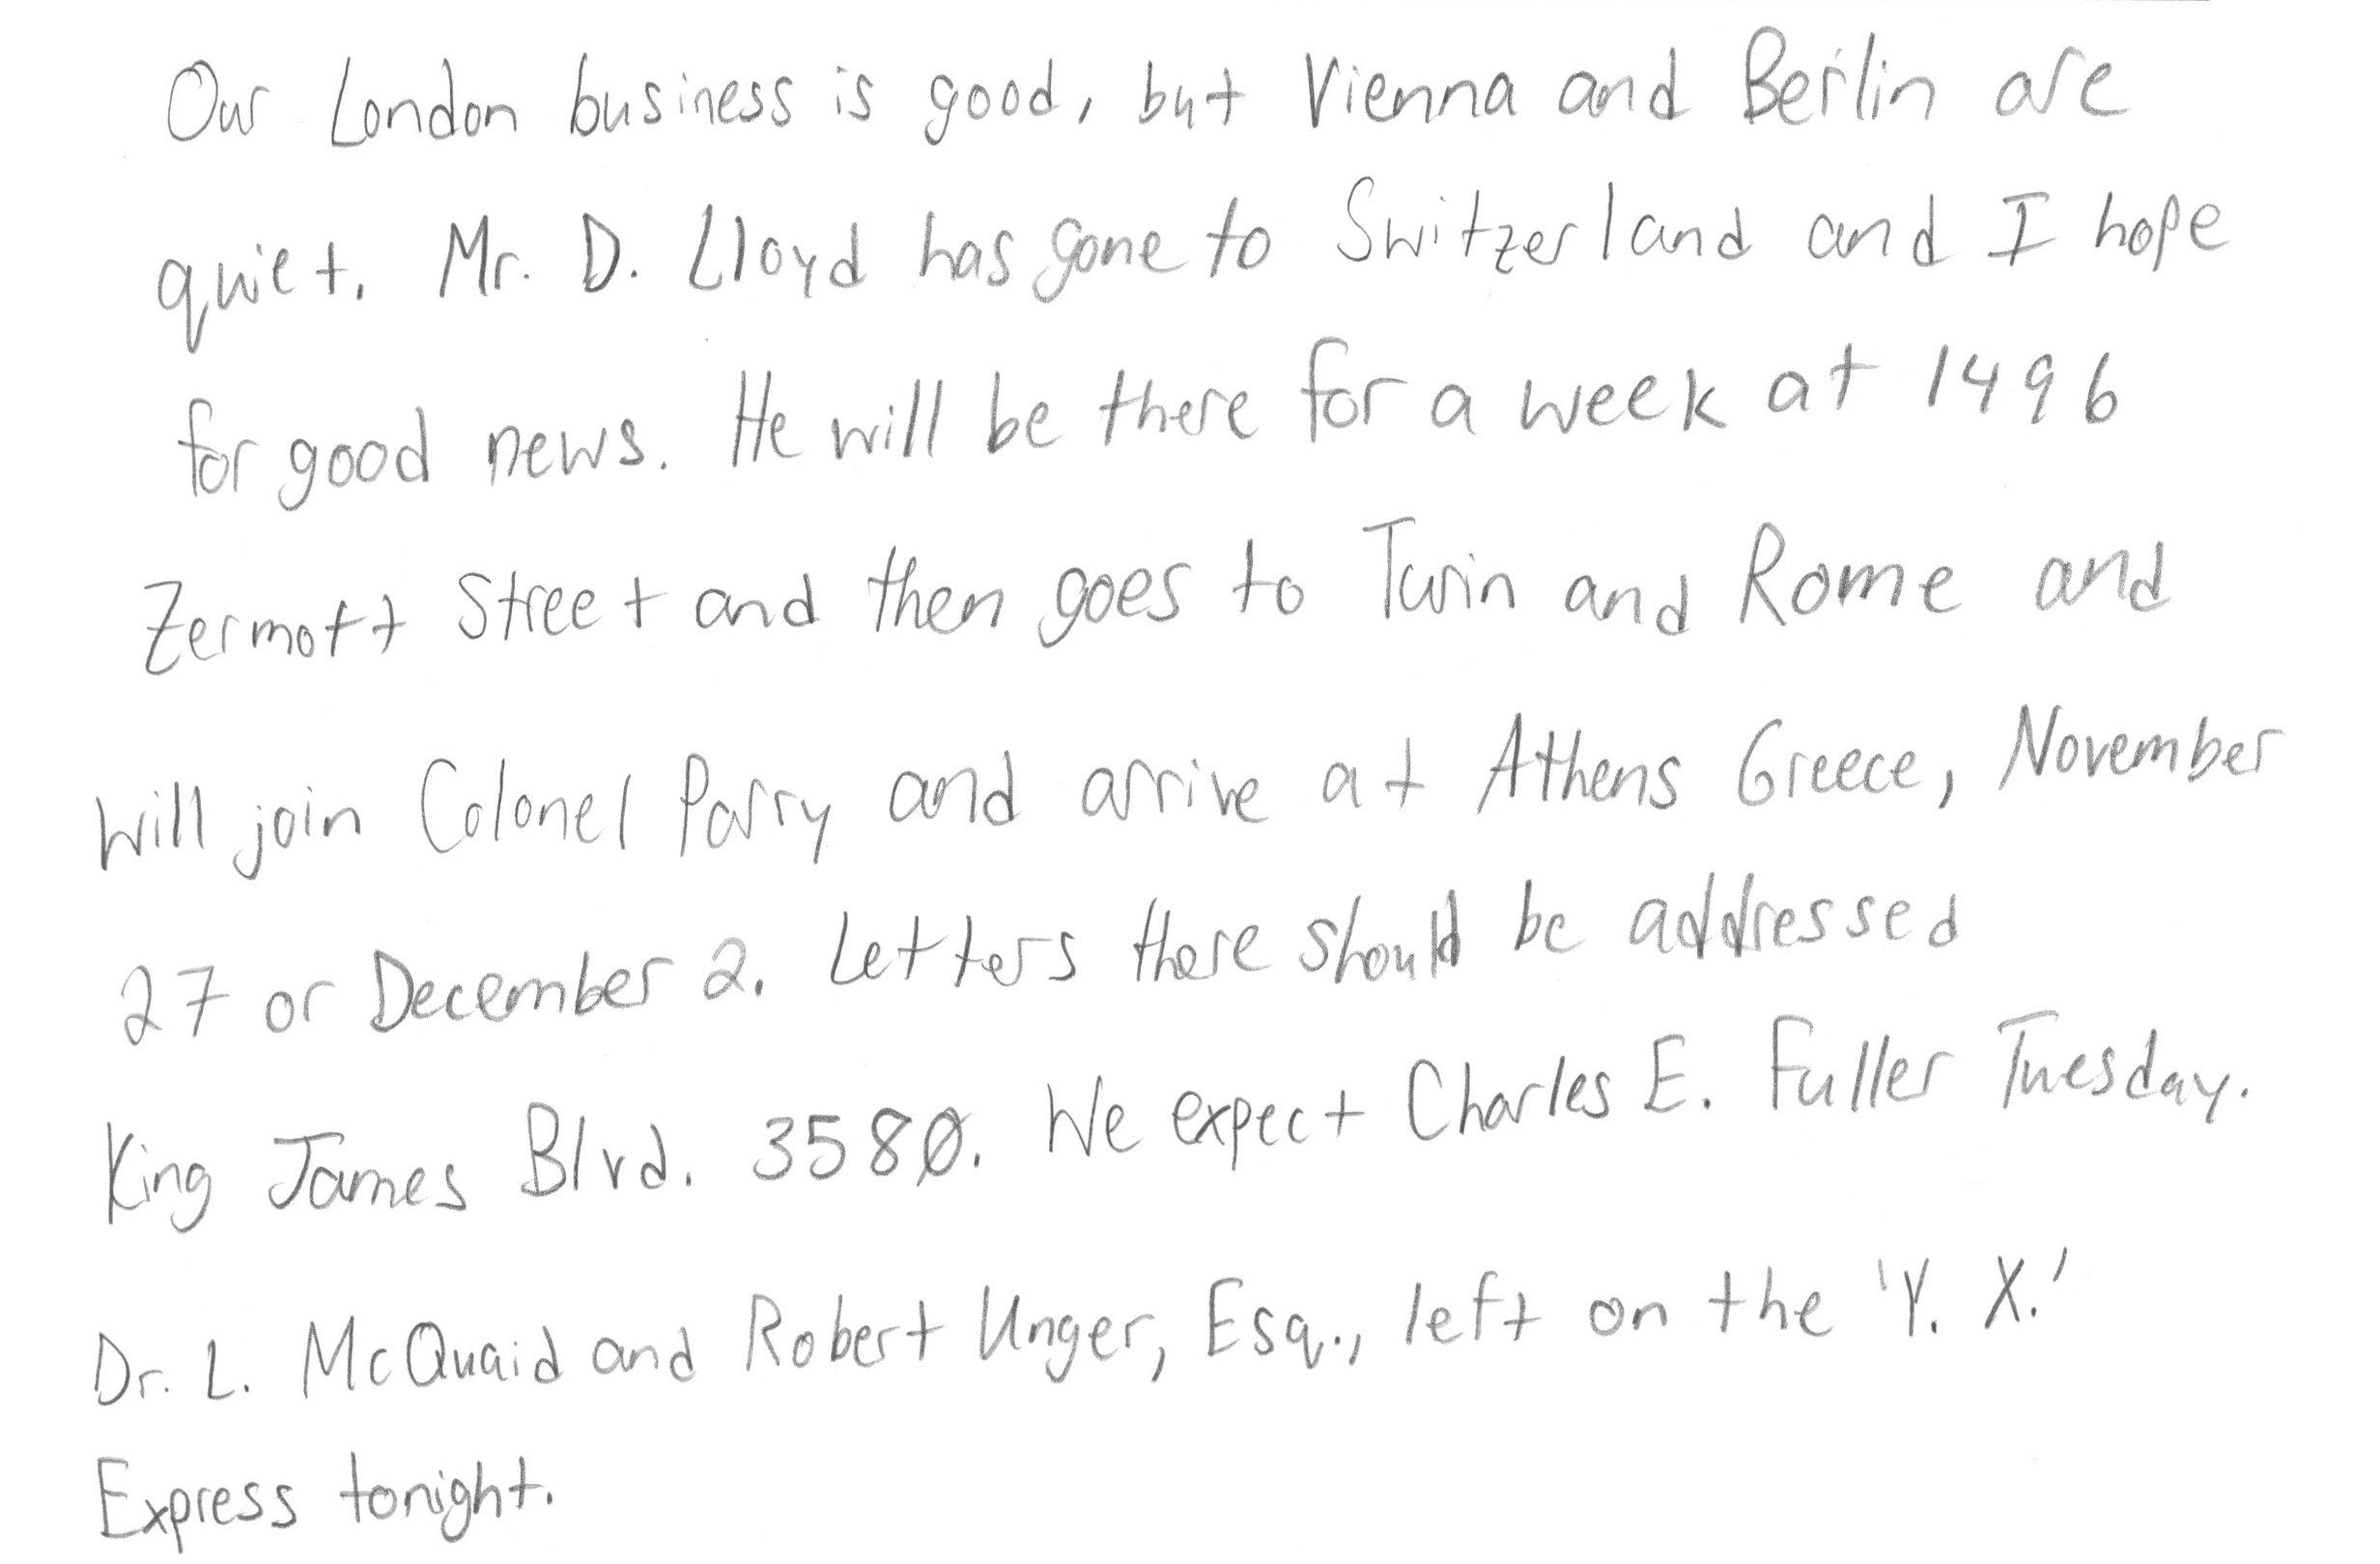 Our London business is good, but Vienna and Berlin are
quiet. Mr. D. Lloyd has gone to Switzerland and I hope
for good news. He will be there for a week at 1496
Zermott Street and then goes to Turin and Rome and
will join Colonel Parry and arrive at Athens Greece, November
27 or December 2. Letters there should be addressed
King James Blvd. 3580. We expect Charles E. Fuller Tuesday.
Dr. L. McQuaid and Robert Unger, Esq., left on the 'Y. X.'
Express tonight.